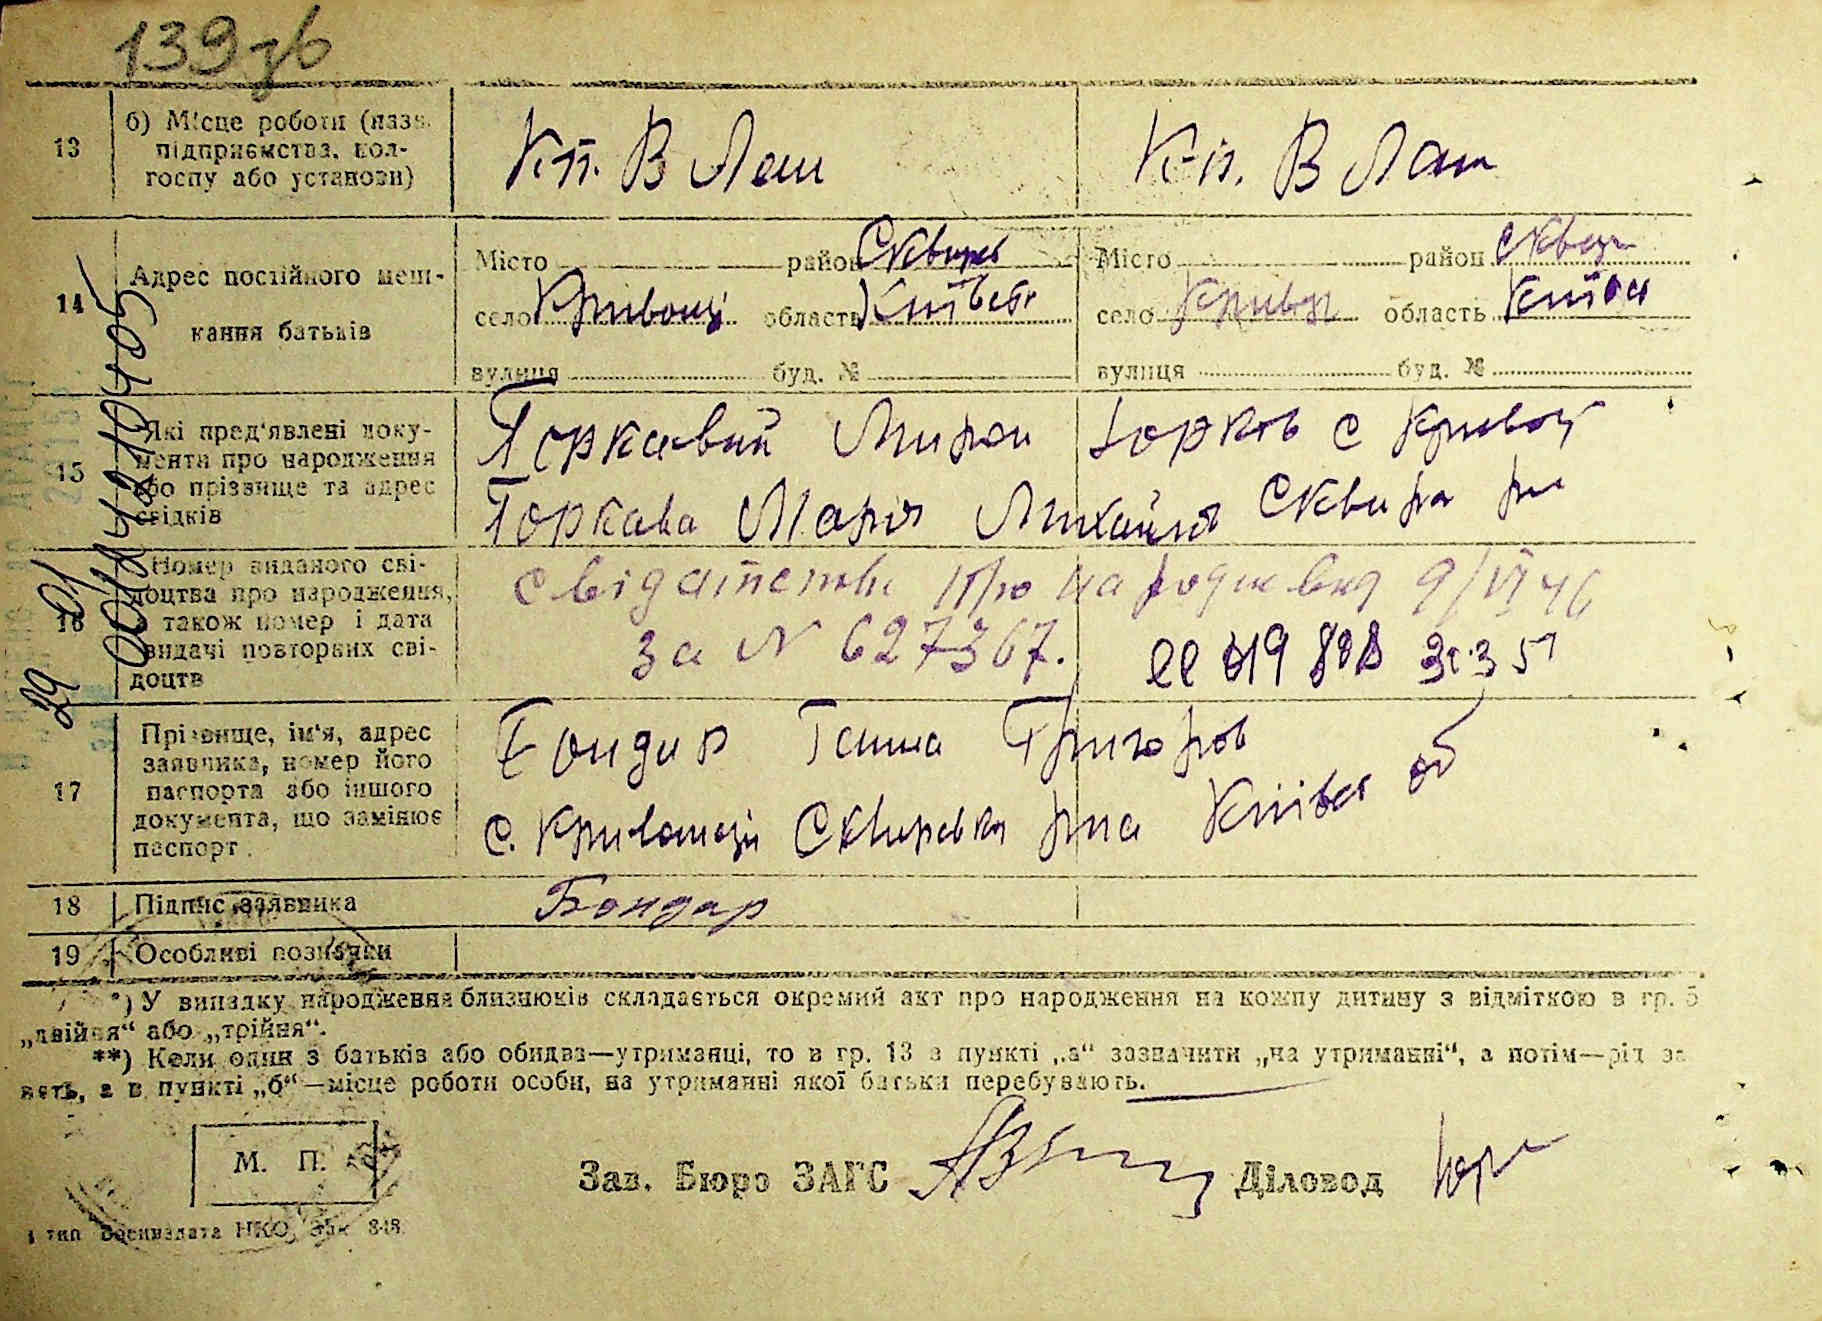 139 зв
13
б) Місце роботи (назв.
підприємства, кол-
госпу або установи)
Кп. В Лаш
Кп. В Лаш
14
Адрес постійного меш-
кання батьків
Місто район Сквирсь
село Кривош область Київськ
вулиця буд. №
Місто район Сквир
село Кривош область Київсь
вулиця буд. №
15
Які пред'явлені доку-
менти про народження
або прізвище та адрес
свідків
Торкавий Мирон Юрков с Кривош
Торкава Марія Михайлів Сквира рн
16
Номер виданого сві-
доцтва про народження,
а також номер і дата
видачі повторних сві-
доцтв
Свідоптство про народження 9/VI 46
за N 627367.
17
Прізвище, ім'я, адрес
заявника, номер його
паспорта або іншого
документа, що замінює
паспорт.
Бондар Ганна Григоров
с. Кривошеїн Сквирська рна Київсь об
18
Підпис заявника
Бондар
19
Особливі познавки
*) У випадку народження близнюків складається окремий акт про народження на кожну дитину з відміткою в гр. 5
„двійня“ або „трійня“.
**) Коли один з батьків або обидва—утриманці, то в гр. 13 в пункті „а“ зазначити „на утриманні“, а потім—рід за
нять, а в пункті „б“—місце роботи особи, на утриманні якої батьки перебувають.
М. П.
Зав. Бюро ЗАГС Діловод
1 тип Воениздата НКО, Зак 848